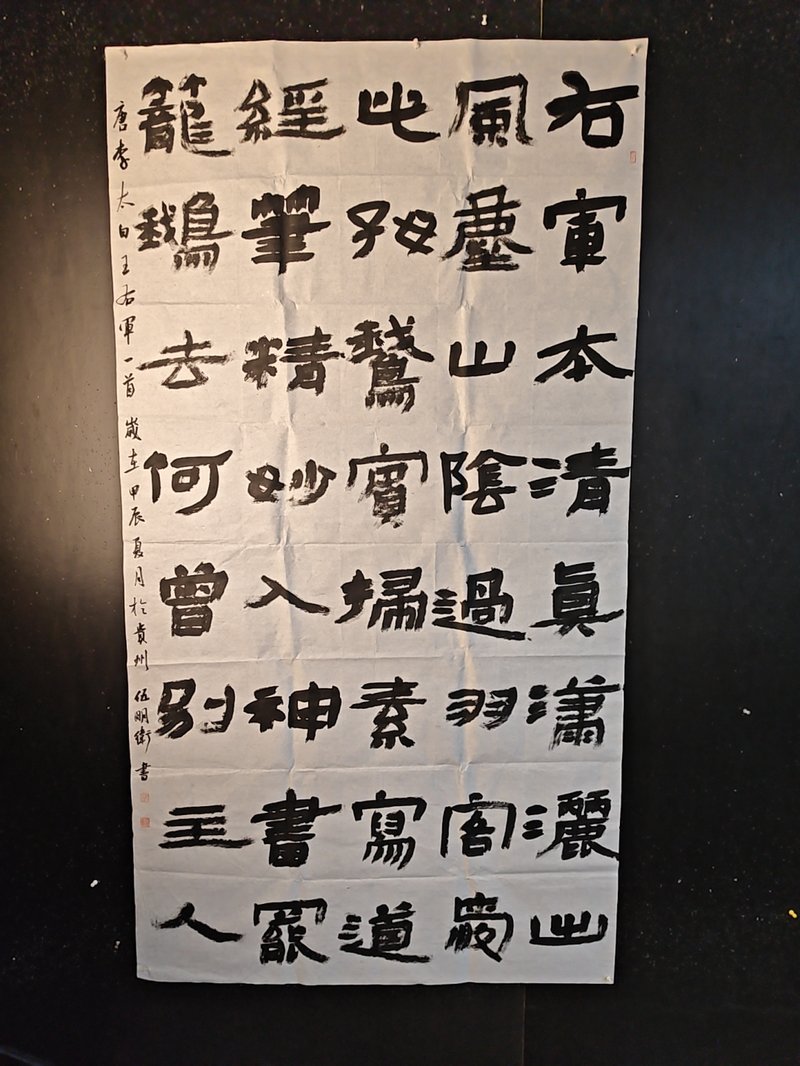 右軍本清眞瀟灑出
風塵山陰過羽客愛
此好鵞賓掃素寫道
經筆精妙入神書罷
籠鵝去何曾別主人
唐李太白王右軍一首 歲在甲辰夏月於貴州 伍明衛書